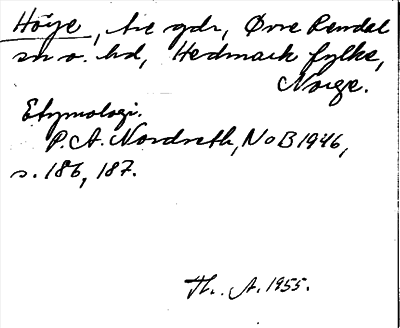 Höye, tre gdr, Övre Rendal
sn o. hd, Hedmark fylke,
Norge.
Etymologi.
P. A. Nordseth, NoB 1946,
s. 186, 187.
Th. A. 1955.